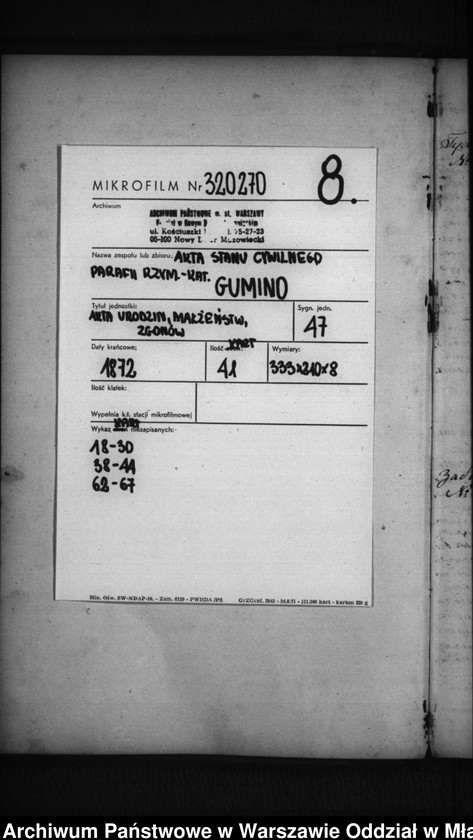 8.
MIKROFILM Nr 320270
Archiwum
ARCHIWUM PAŃSTWOWE m. st. WARSZAWY
ul. Kościuszki
05-100 Nowy Mazowiecki
Nazwa zespołu lub zbioru: AKTA STANU CYWILNEGO
PARAFII RZYM.-KAT.
GUMINO
Tytuł jednostki: Sygn. jedn.
AKTA URODZIN, MAŁŻEŃSTW,
ZGONÓW
47
Daty krańcowe: Ilość KART Wymiary:
1872 41 333x210x8
Ilość klatek:
Wypełnia k.t. stacji mikrofilmowej
KART
Wykaz niezapisanych:
18-30
38-41
62-67
Archiwum Państwowe w Warszawie Oddział w Mła